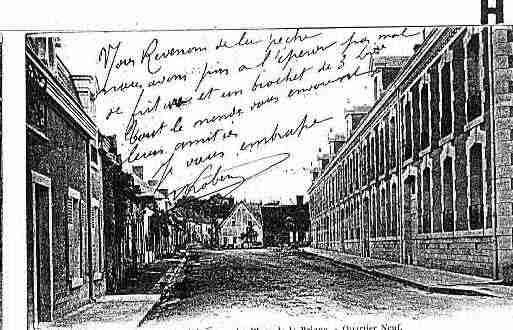 H
Nous Revenons de la pêche
nous avons pris a l'épervier pas mal
de friture et un brochet de 3
tout le monde vous envoient
leurs amitiés
Je vous embrasse
Place de la Quartier Neuf.